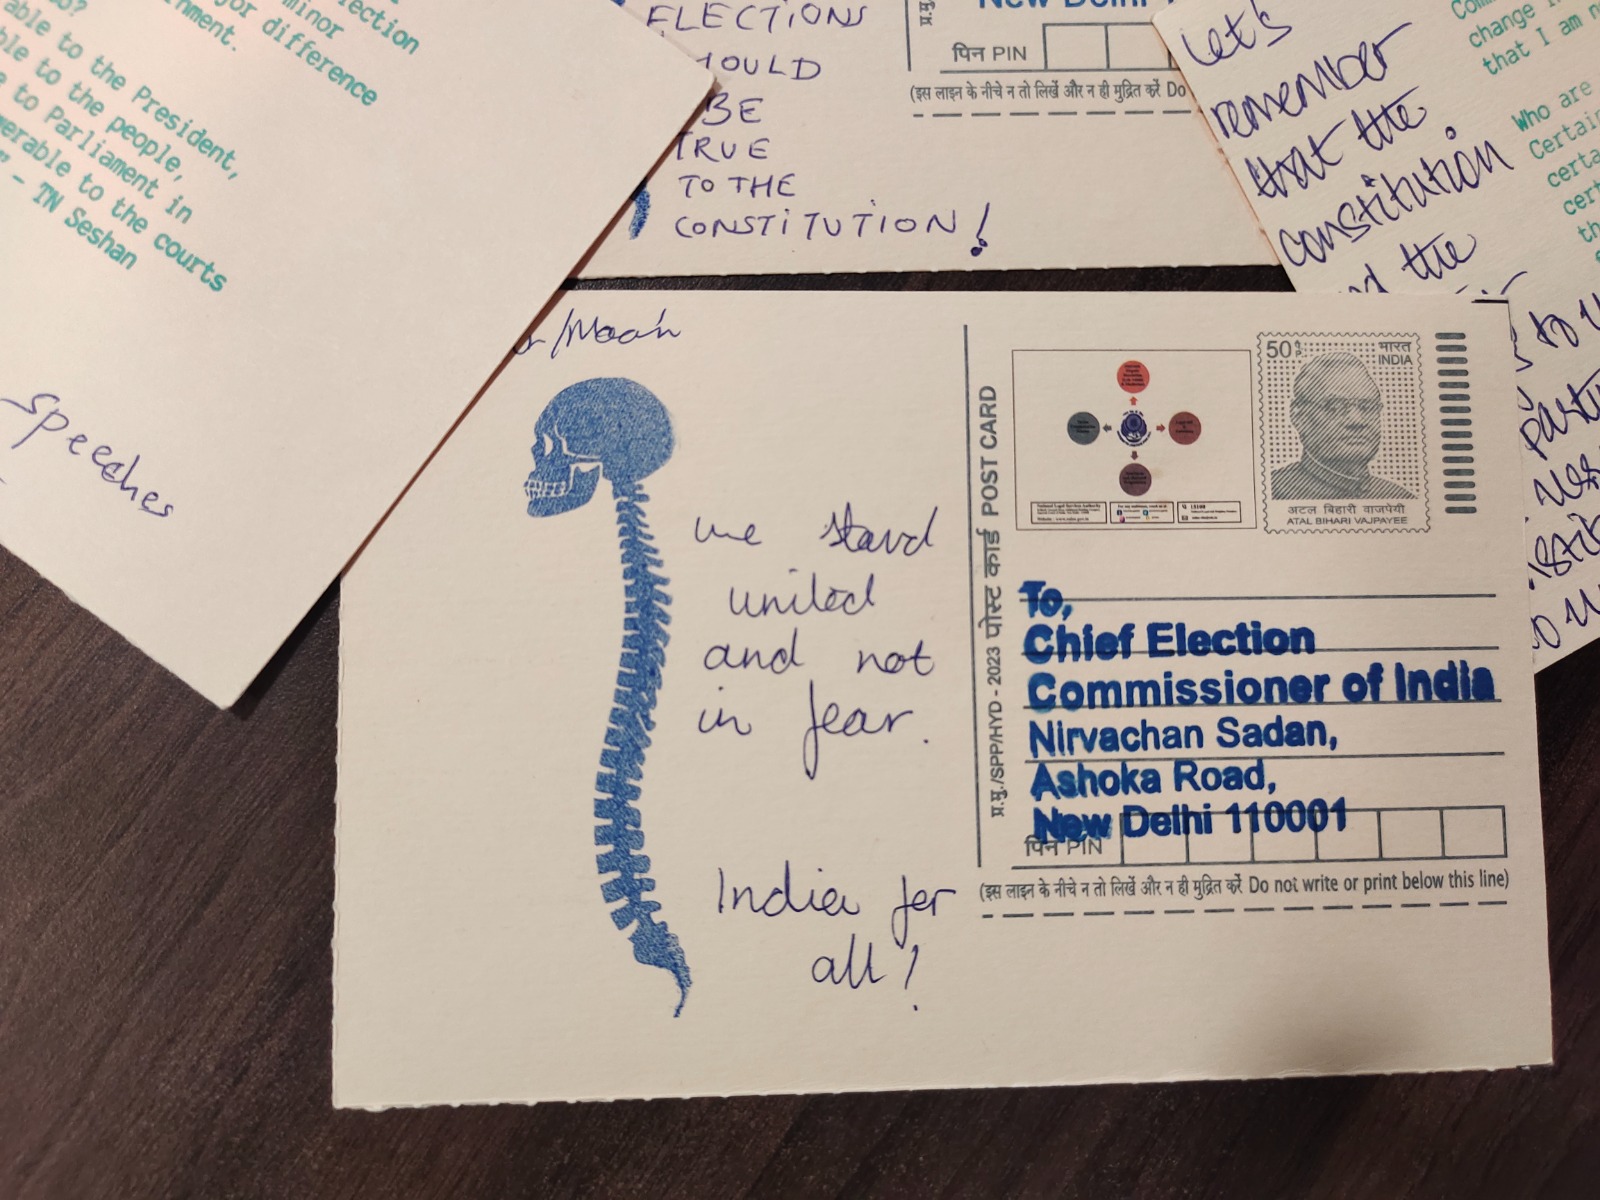 ection
minor
jor difference
rnment.
able to the President,
ble to the people,
e to Parliament in
erable to the courts
" - TN Seshan
Speeches
ELECTIONS
HOULD
BE
TRUE
TO THE
CONSTITUTION!
New Delhi
पिन PIN
(इस लाइन के नीचे न तो लिखें और न ही मुद्रित करें Do
Let's
remember
that the
constitution
the
change
that I am n
Who are
Certai
certa
cert
th
/Ma'am
we stand
united
and not
in fear.
India for
all!
प्र.मु./SPP/HYD - 2023 पोस्ट कार्ड POST CARD
50
भारत
INDIA
अटल बिहारी वाजपेयी
ATAL BIHARI VAJPAYEE
To,
Chief Election
Commissioner of India
Nirvachan Sadan,
Ashoka Road,
New Delhi 110001
पिन PIN
(इस लाइन के नीचे न तो लिखें और न ही मुद्रित करें Do not write or print below this line)